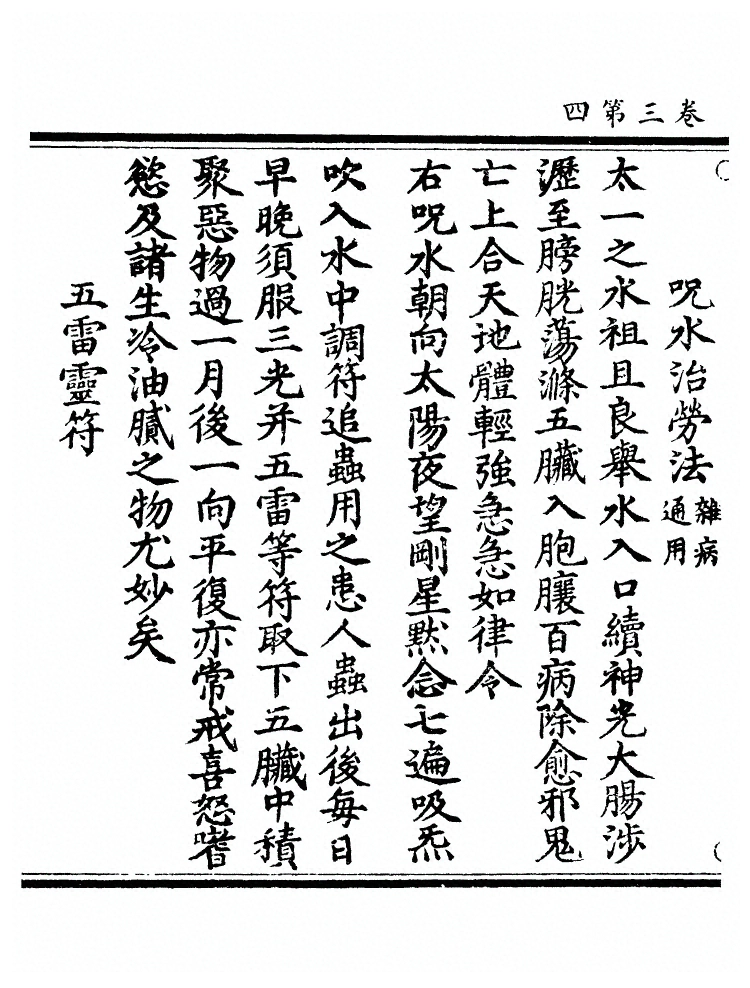 卷三第四
呪水治勞法雜病通用
太一之水祖且良舉水入口續神光大腸涉
瀝至膀胱蕩滌五臟入胞腹百病除愈邪鬼
亡上合天地體輕強急急如律令
右呪水朝向太陽夜望剛星默念七遍吸炁
吹入水中調符追蟲用之患人蟲出後每日
早晚須服三光并五雷等符取下五臟中積
聚惡物過一月後一向平復亦常戒喜怒嗜
慾及諸生冷油膩之物尤妙矣
五雷靈符